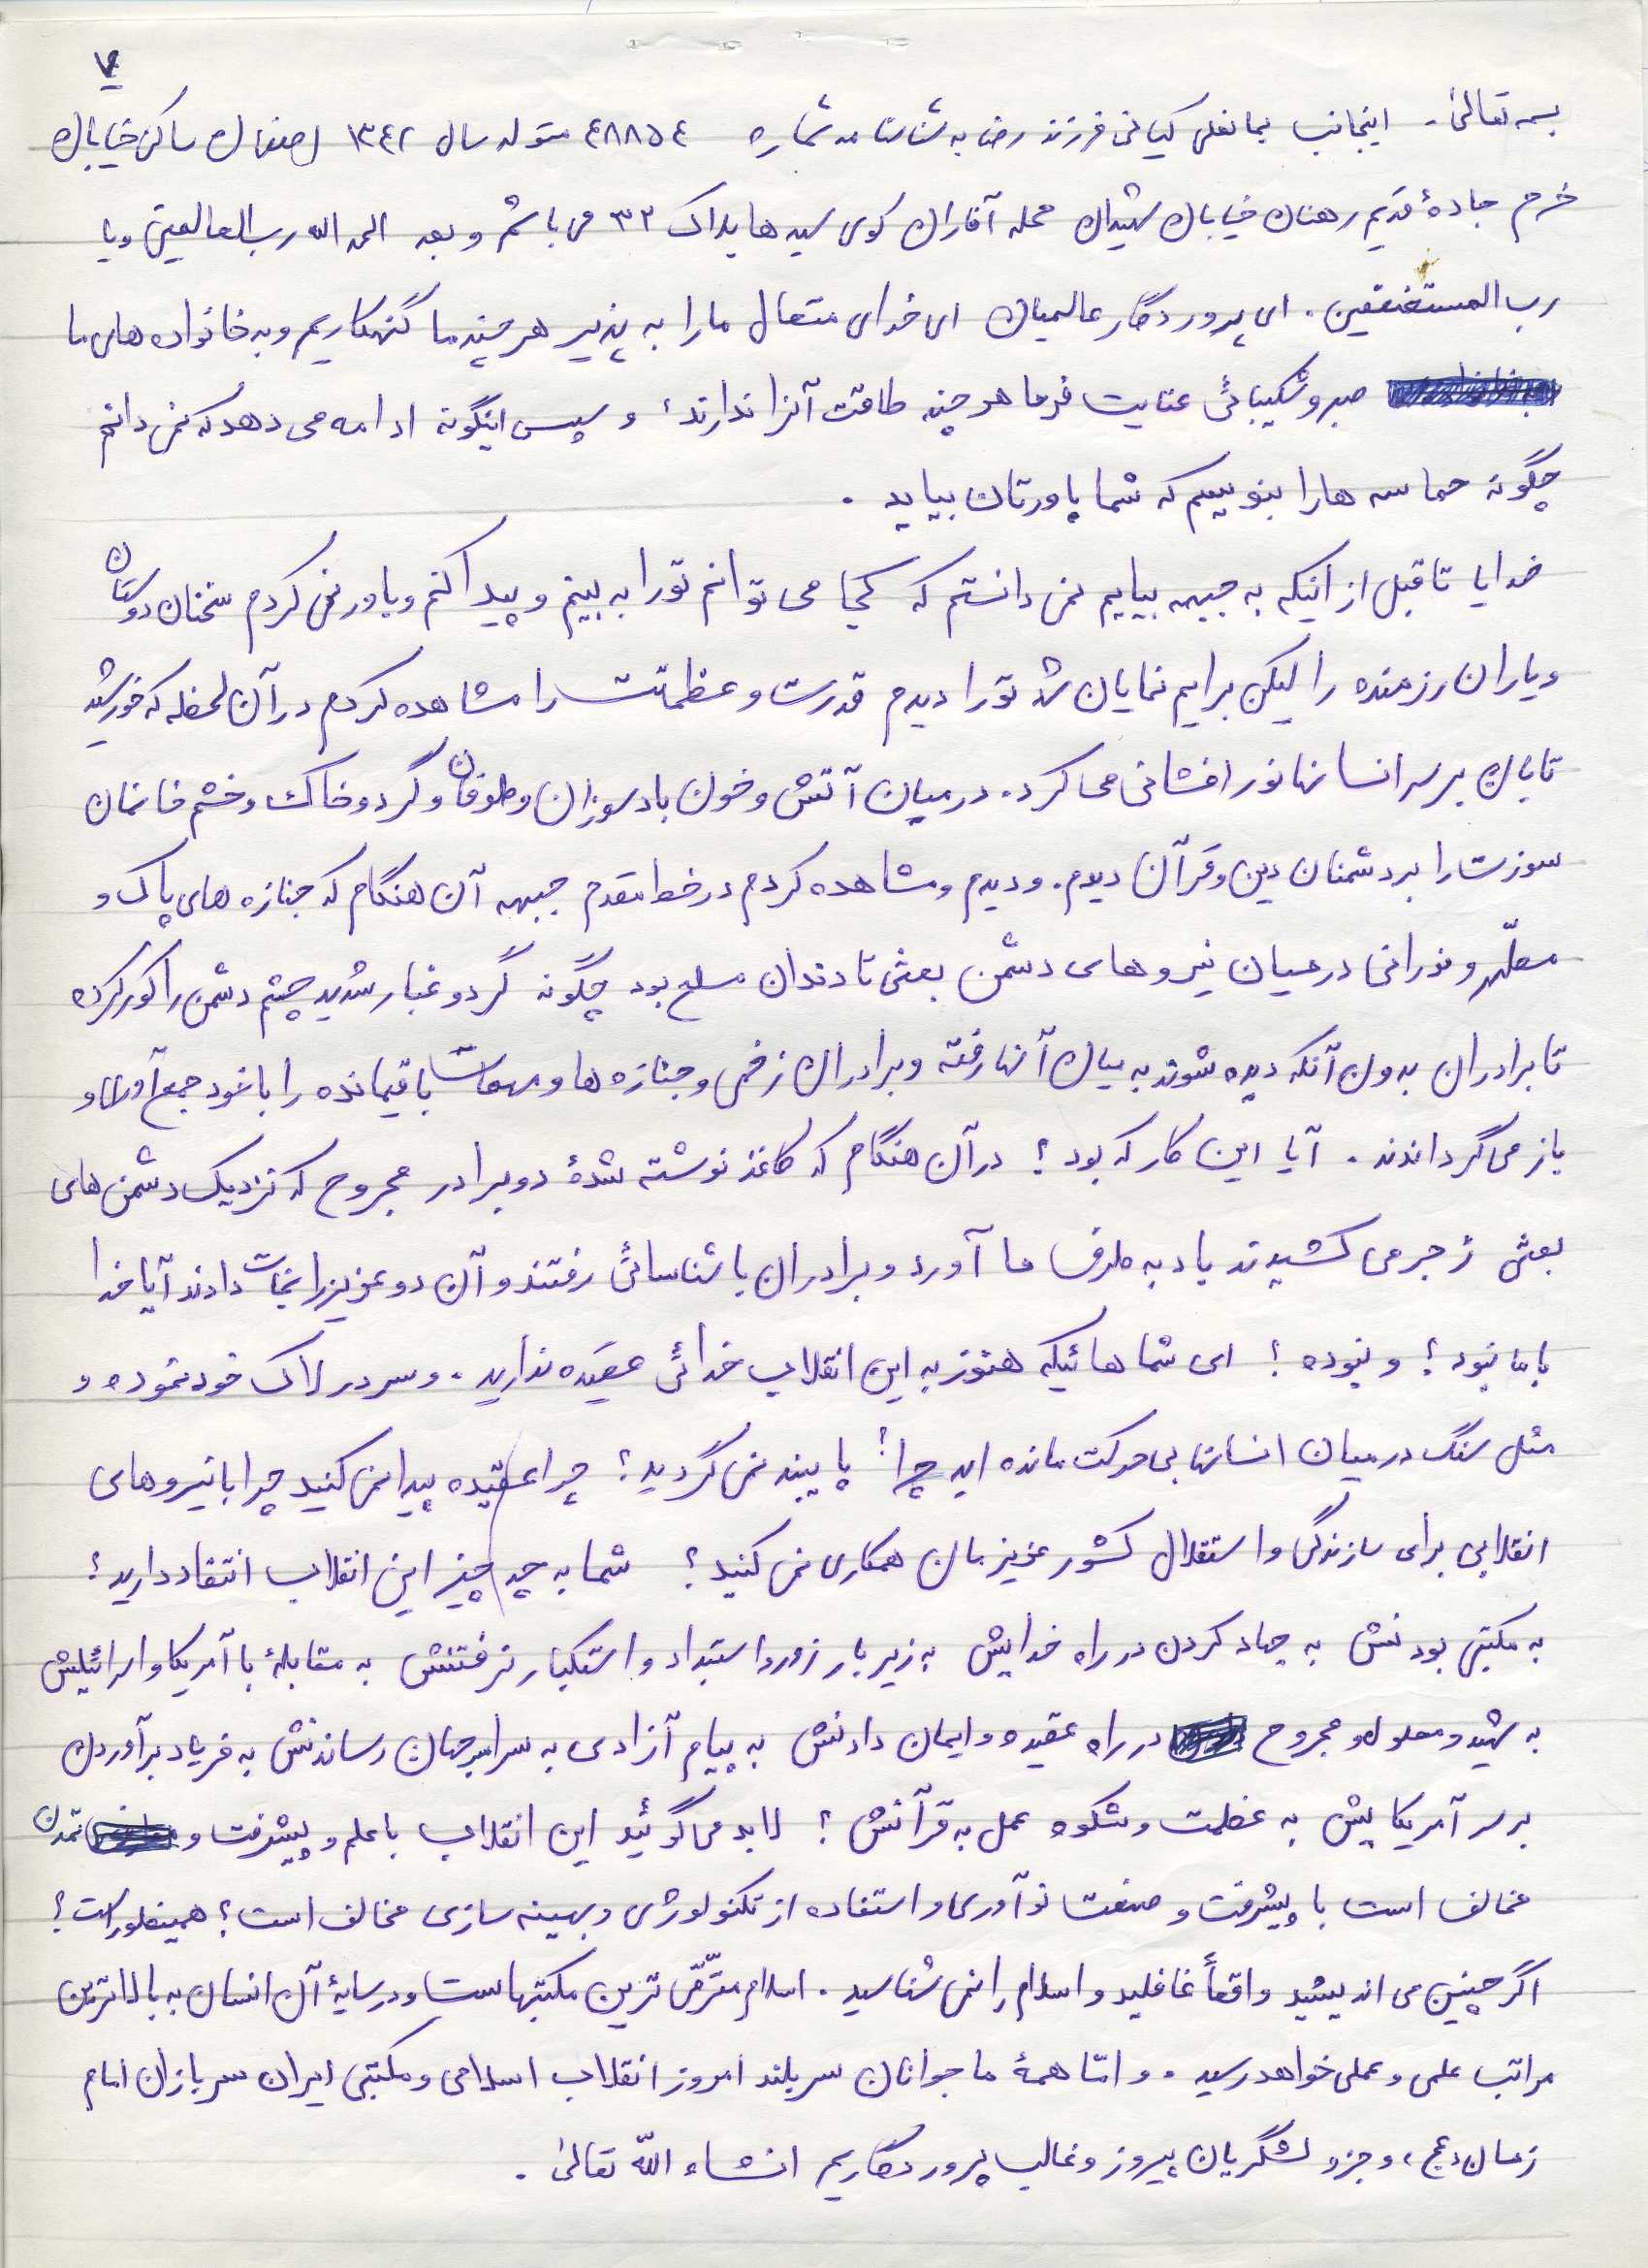 ۷
بسمه تعالیٰ. اینجانب یمانعلی کیانی فرزند رضا به شناسنامه شماره ۴۸۸۵۴ متولد سال ۱۳۴۲ اصفهان ساکن خیابان
خرم جادهٔ قدیم رهنان خیابان شهیدان محله آقاران کوی سیدها پلاک ۳۲ می باشم و بعد الحمد الله رب العالمین و یا
رب المستضعفین. ای پروردگار عالمیان ای خدای متعال ما را به پذیر هر چند ما گنهکاریم و به خانواده های ما
صبر و شکیبائی عنایت فرما هر چند طاقت آنرا ندارند، و سپس اینگونه ادامه می دهد که نمی دانم
چگونه حماسه ها را بنویسم که شما باورتان بیاید .
خدایا تا قبل از اینکه به جبهه بیایم نمی دانستم که کجا می توانم تو را به بینم و پیدا کنم و باور نمی کردم سخنان دوستان
و یاران رزمنده را لیکن برایم نمایان شد تو را دیدم قدرت و عظمتت را مشاهده کردم در آن لحظه که خورشید
تابان بر سر انسانها نور افشانی می کرد. در میان آتش و خون باد سوزان و طوفان و گرد و خاک و خشم خانمان
سوزت را بر دشمنان دین و قرآن دیدم. و دیدم و مشاهده کردم در خط مقدم جبهه آن هنگام که جنازه های پاک و
مطهّر و نورانی در میان نیروهای دشمن بعثی تا دندان مسلح بود چگونه گرد و غبار شدید چشم دشمن را کور کرده
تا برادران بدون آنکه دیده شوند به میان آنها رفته و برادران زخمی و جنازه ها و مهمات باقیمانده را با خود جمع آوری و
باز می گرداندند . آیا این کار که بود ؟ در آن هنگام که کاغذ نوشته شدهٔ دو برادر مجروح که نزدیک دشمن های
بعثی زجر می کشیدند باد به طرف ما آورد و برادران با شناسائی رفتند و آن دو عزیز را نجات دادند آیا خدا
با ما نبود ؟ و نبوده ؟ ای شما هائیکه هنوز به این انقلاب خدائی عقیده ندارید . و سر در لاک خود نموده و
مثل سنگ در میان انسانها بی حرکت مانده اید چرا؟ پایبند نمی گردید ؟ چرا عقیده پیدا نمی کنید چرا با نیروهای
انقلابی برای سازندگی و استقلال کشور عزیزمان همکاری نمی کنید ؟ شما به چه چیز این انقلاب انتقاد دارید ؟
به مکتبی بودنش به جهاد کردن در راه خدایش به زیر بار زور و استبداد و استکبار نرفتنش به مقابلهٔ با آمریکا و اسرائیلش
به شهید و معلول و مجروح در راه عقیده و ایمان دادنش به پیام آزادی به سراسر جهان رساندنش به فریاد برآوردن
بر سر آمریکایش به عظمت و شکوه عمل به قرآنش ؟ لابد می گوئید این انقلاب با علم و پیشرفت و تمدن
مخالف است با پیشرفت و صنعت نوآوری و استفاده از تکنولوژی و بهینه سازی مخالف است ؟ همینطور است ؟
اگر چنین می اندیشید واقعاً غافلید و اسلام را نمی شناسید . اسلام مترقّی ترین مکتبهاست و در سایهٔ آن انسان به بالاترین
مراتب علمی و عملی خواهد رسید . و امّا همهٔ ما جوانان سربلند امروز انقلاب اسلامی و مکتبی ایران سربازان امام
زمان (عج) و جزو لشگریان پیروز و غالب پروردگاریم انشاء اللّه تعالیٰ .